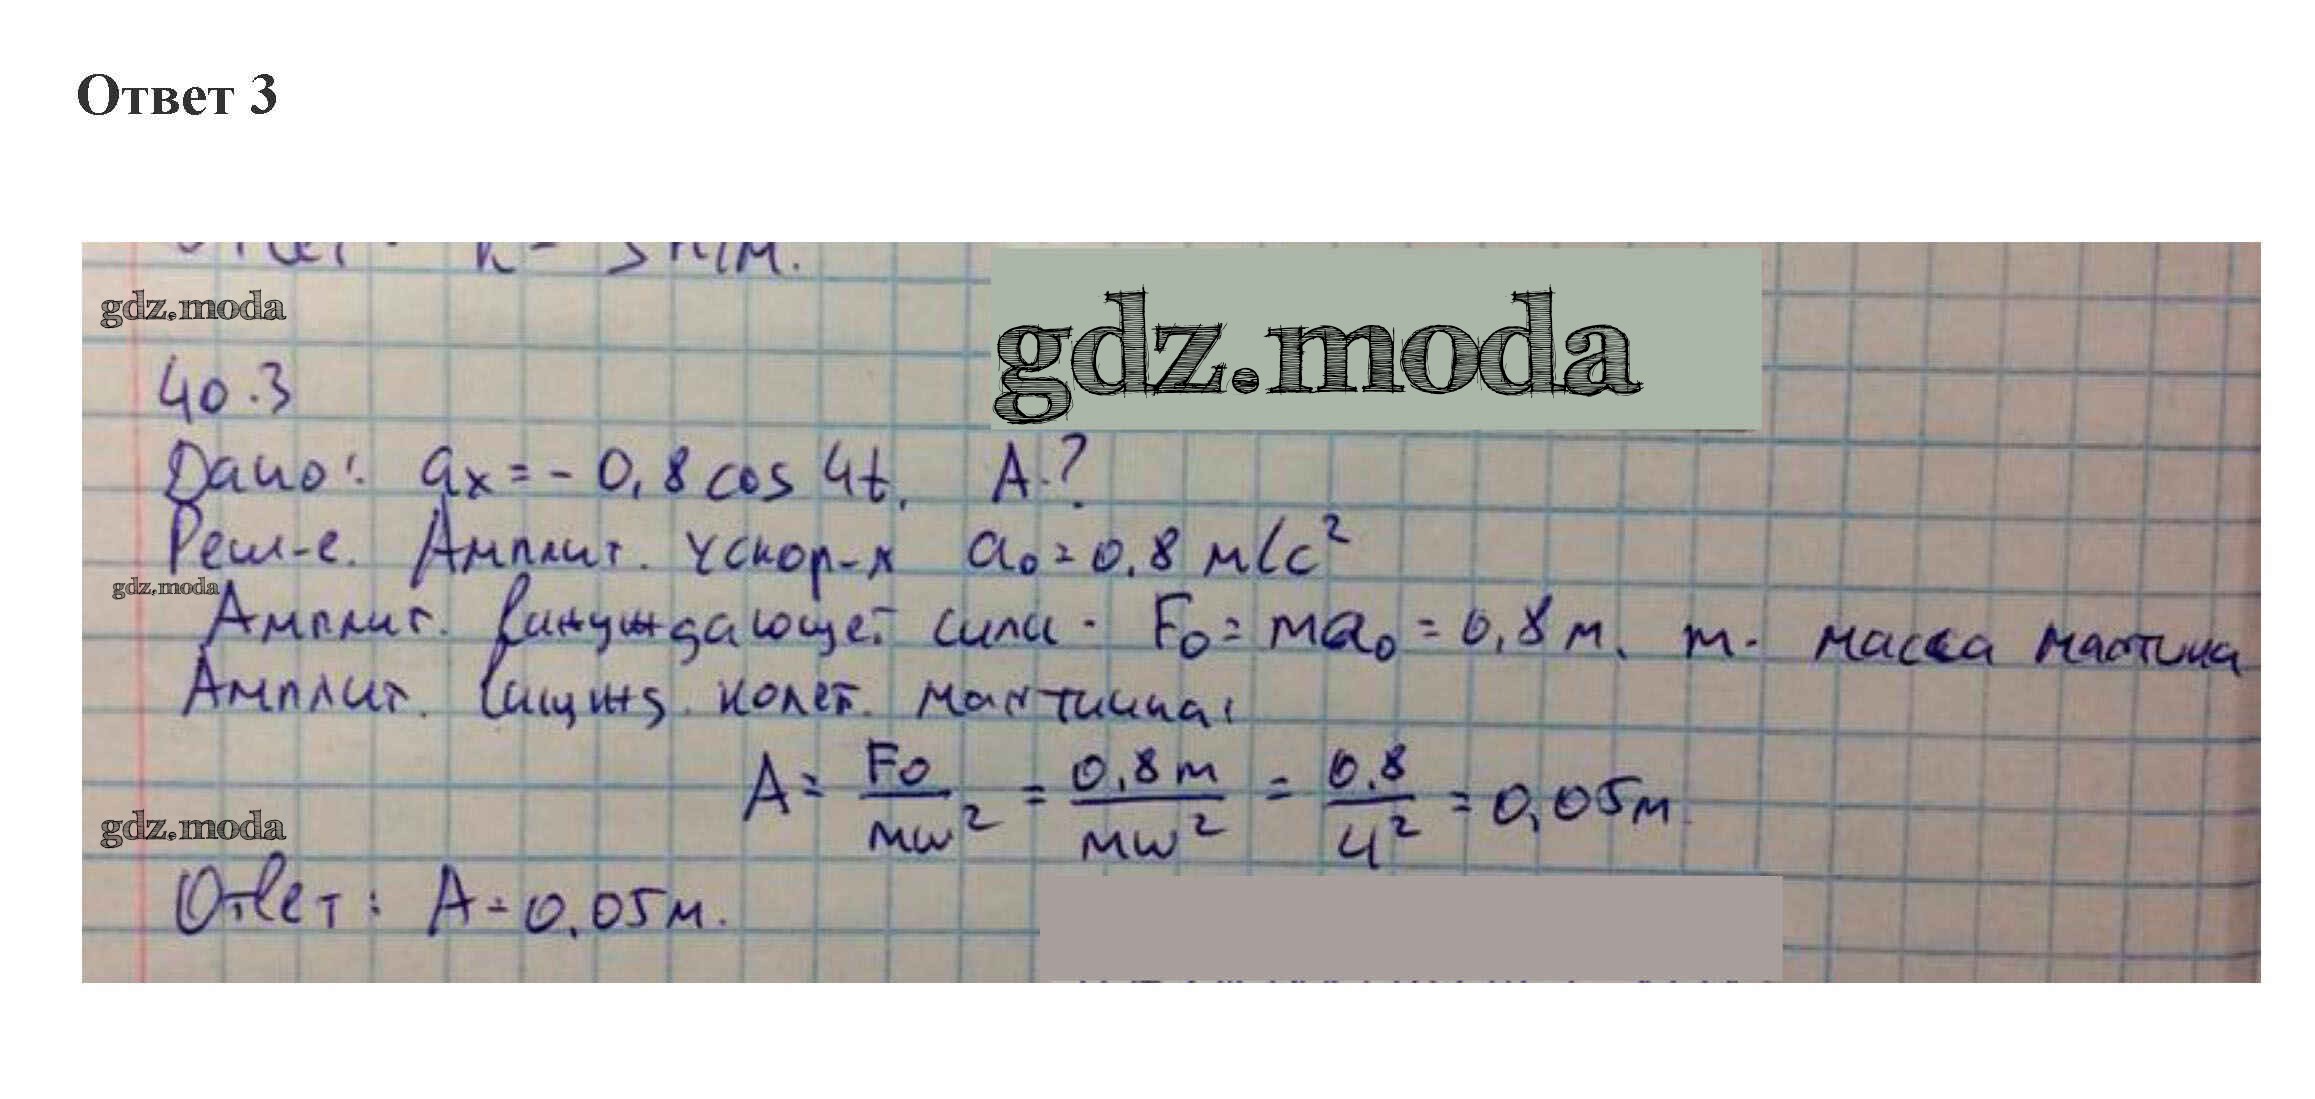 Ответ 3
Ответ. k = 5 Н/м.
gdz.moda
gdz.moda
40.3
Дано: ax = - 0,8 cos 4t, A-?
Реш-е. Амплит. ускор-я a0 = 0,8 м/с²
gdz.moda
Амплит. вынуждающей силы - F0 = ma0 = 0,8 m, m - масса маятника
Амплит. вынужд. колеб. маятника:
A = F0/mw² = 0,8m/mw² = 0,8/4² = 0,05м.
gdz.moda
Ответ: A = 0,05м.